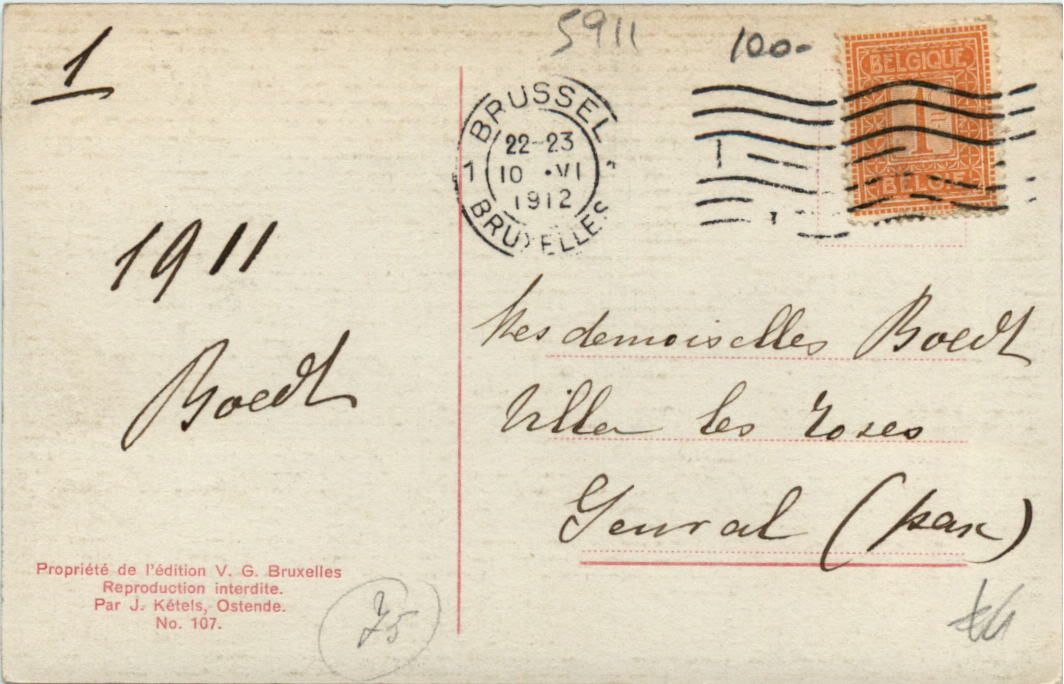 1
5911
100-
BELGIQUE
1
BELGIË
BRUSSEL
22-23
1 10 •VI
1912
BRUXELLES
1911
Boedt
Mesdemoiselles Boedt
Villa les Roses
Genval (parc)
Propriété de l'édition V. G. Bruxelles
Reproduction interdite.
Par J. Kétels, Ostende.
No. 107.
75